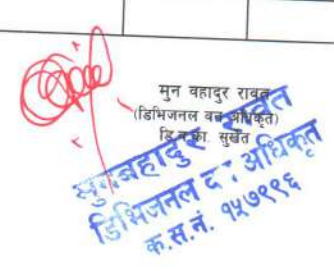 मुन वहादुर रावत
(डिभिजनल वन अधिकृत)
डि.व.का. सुर्खेत
मुनबहादुर रावत
डिभिजनल व अधिकृत
क.स.नं. १५७९९६